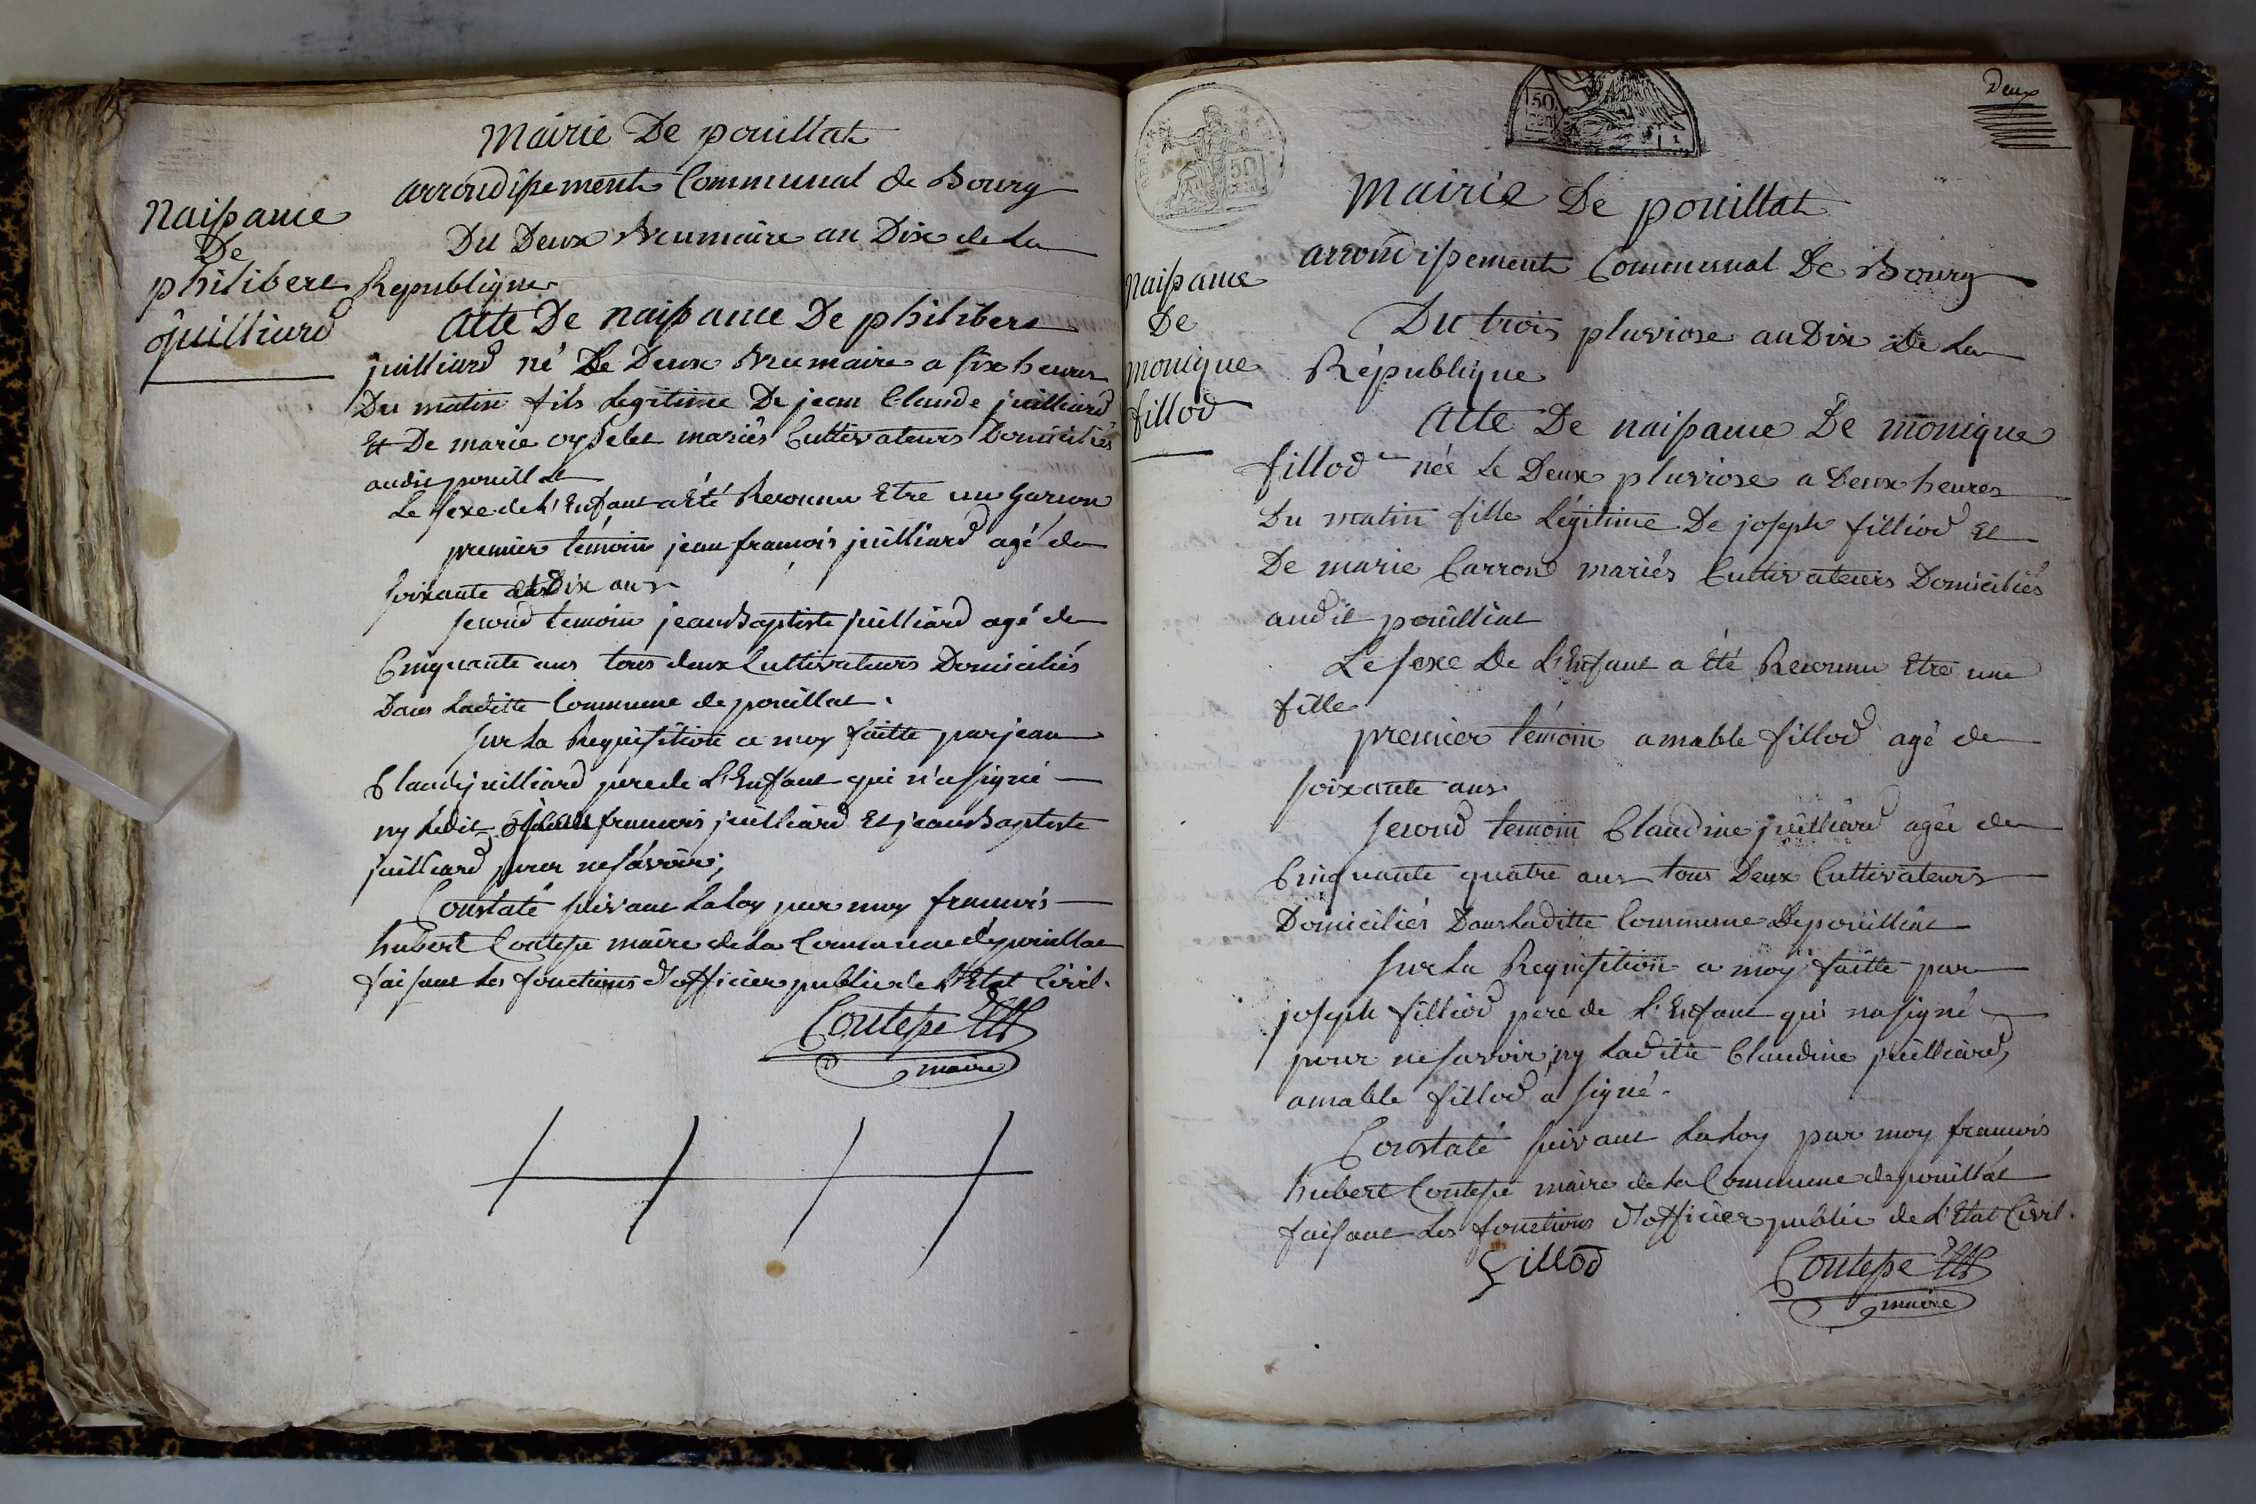 Mairie De pouillat
arrondissement Communal de Bourg
Du Deux Brumaire an Dix de la
Republique
Naissance
De
philibert
juilliard
Acte De naissance De philibert
juilliard né Le Deux Brumaire a six heures
Du matin fils Legitime De jean Claude juilliard
Et De marie oyselet mariés Cultivateurs Domiciliés
audit pouillat
Le sexe de L'Enfant a Eté Reconnu Etre un Garson
premier témoin jean francois juilliard agé de
soixante et Dix ans
second temoin jean Baptiste juilliard agé de
Cinquante ans tous deux Cultivateurs Domiciliés
Dans Laditte Commune de pouillat.
sur La Requisition a moy faitte par jean
Claude juilliard pere de L'Enfant qui n'a signé
ny Ledit jean francois juilliard Et jean Baptiste
juilliard pour ne savoir;
Constaté suivant La Loy par moy francois
hubert Contesse maire de La Commune de pouillat
faisant Les fonctions d'officier public de L'Etat Civil.
Contesse
maire
Deux
50
CEN
50
Mairie De pouillat
arrondissement Communal De Bourg
Du trois pluviose an Dix De La
République
Naissance
De
monique
fillod
Acte De naissance De monique
fillod née Le Deux pluviose a Deux heures
Du matin fille Légitime De joseph filliod Et
De marie Carron mariés Cultivateurs Domiciliés
audit pouilliat
Le sexe De L'Enfant a été Reconnu Etre une
fille
premier témoin amable fillod agé de
soixante ans
second temoin Claudine juilliard agée de
Cinquante quatre ans tous Deux Cultivateurs
Domiciliés Dans Laditte Commune De pouilliat
sur La Requisition a moy faitte par
joseph filliod pere de L'Enfant qui na signé
pour ne savoir, ny Laditte Claudine juilliard,
amable fillod a signé.
Constaté suivant La Loy par moy francois
hubert Contesse maire de La Commune de pouillat
faisant Les fonctions d'officier public de L'Etat Civil.
Fillod
Contesse
maire